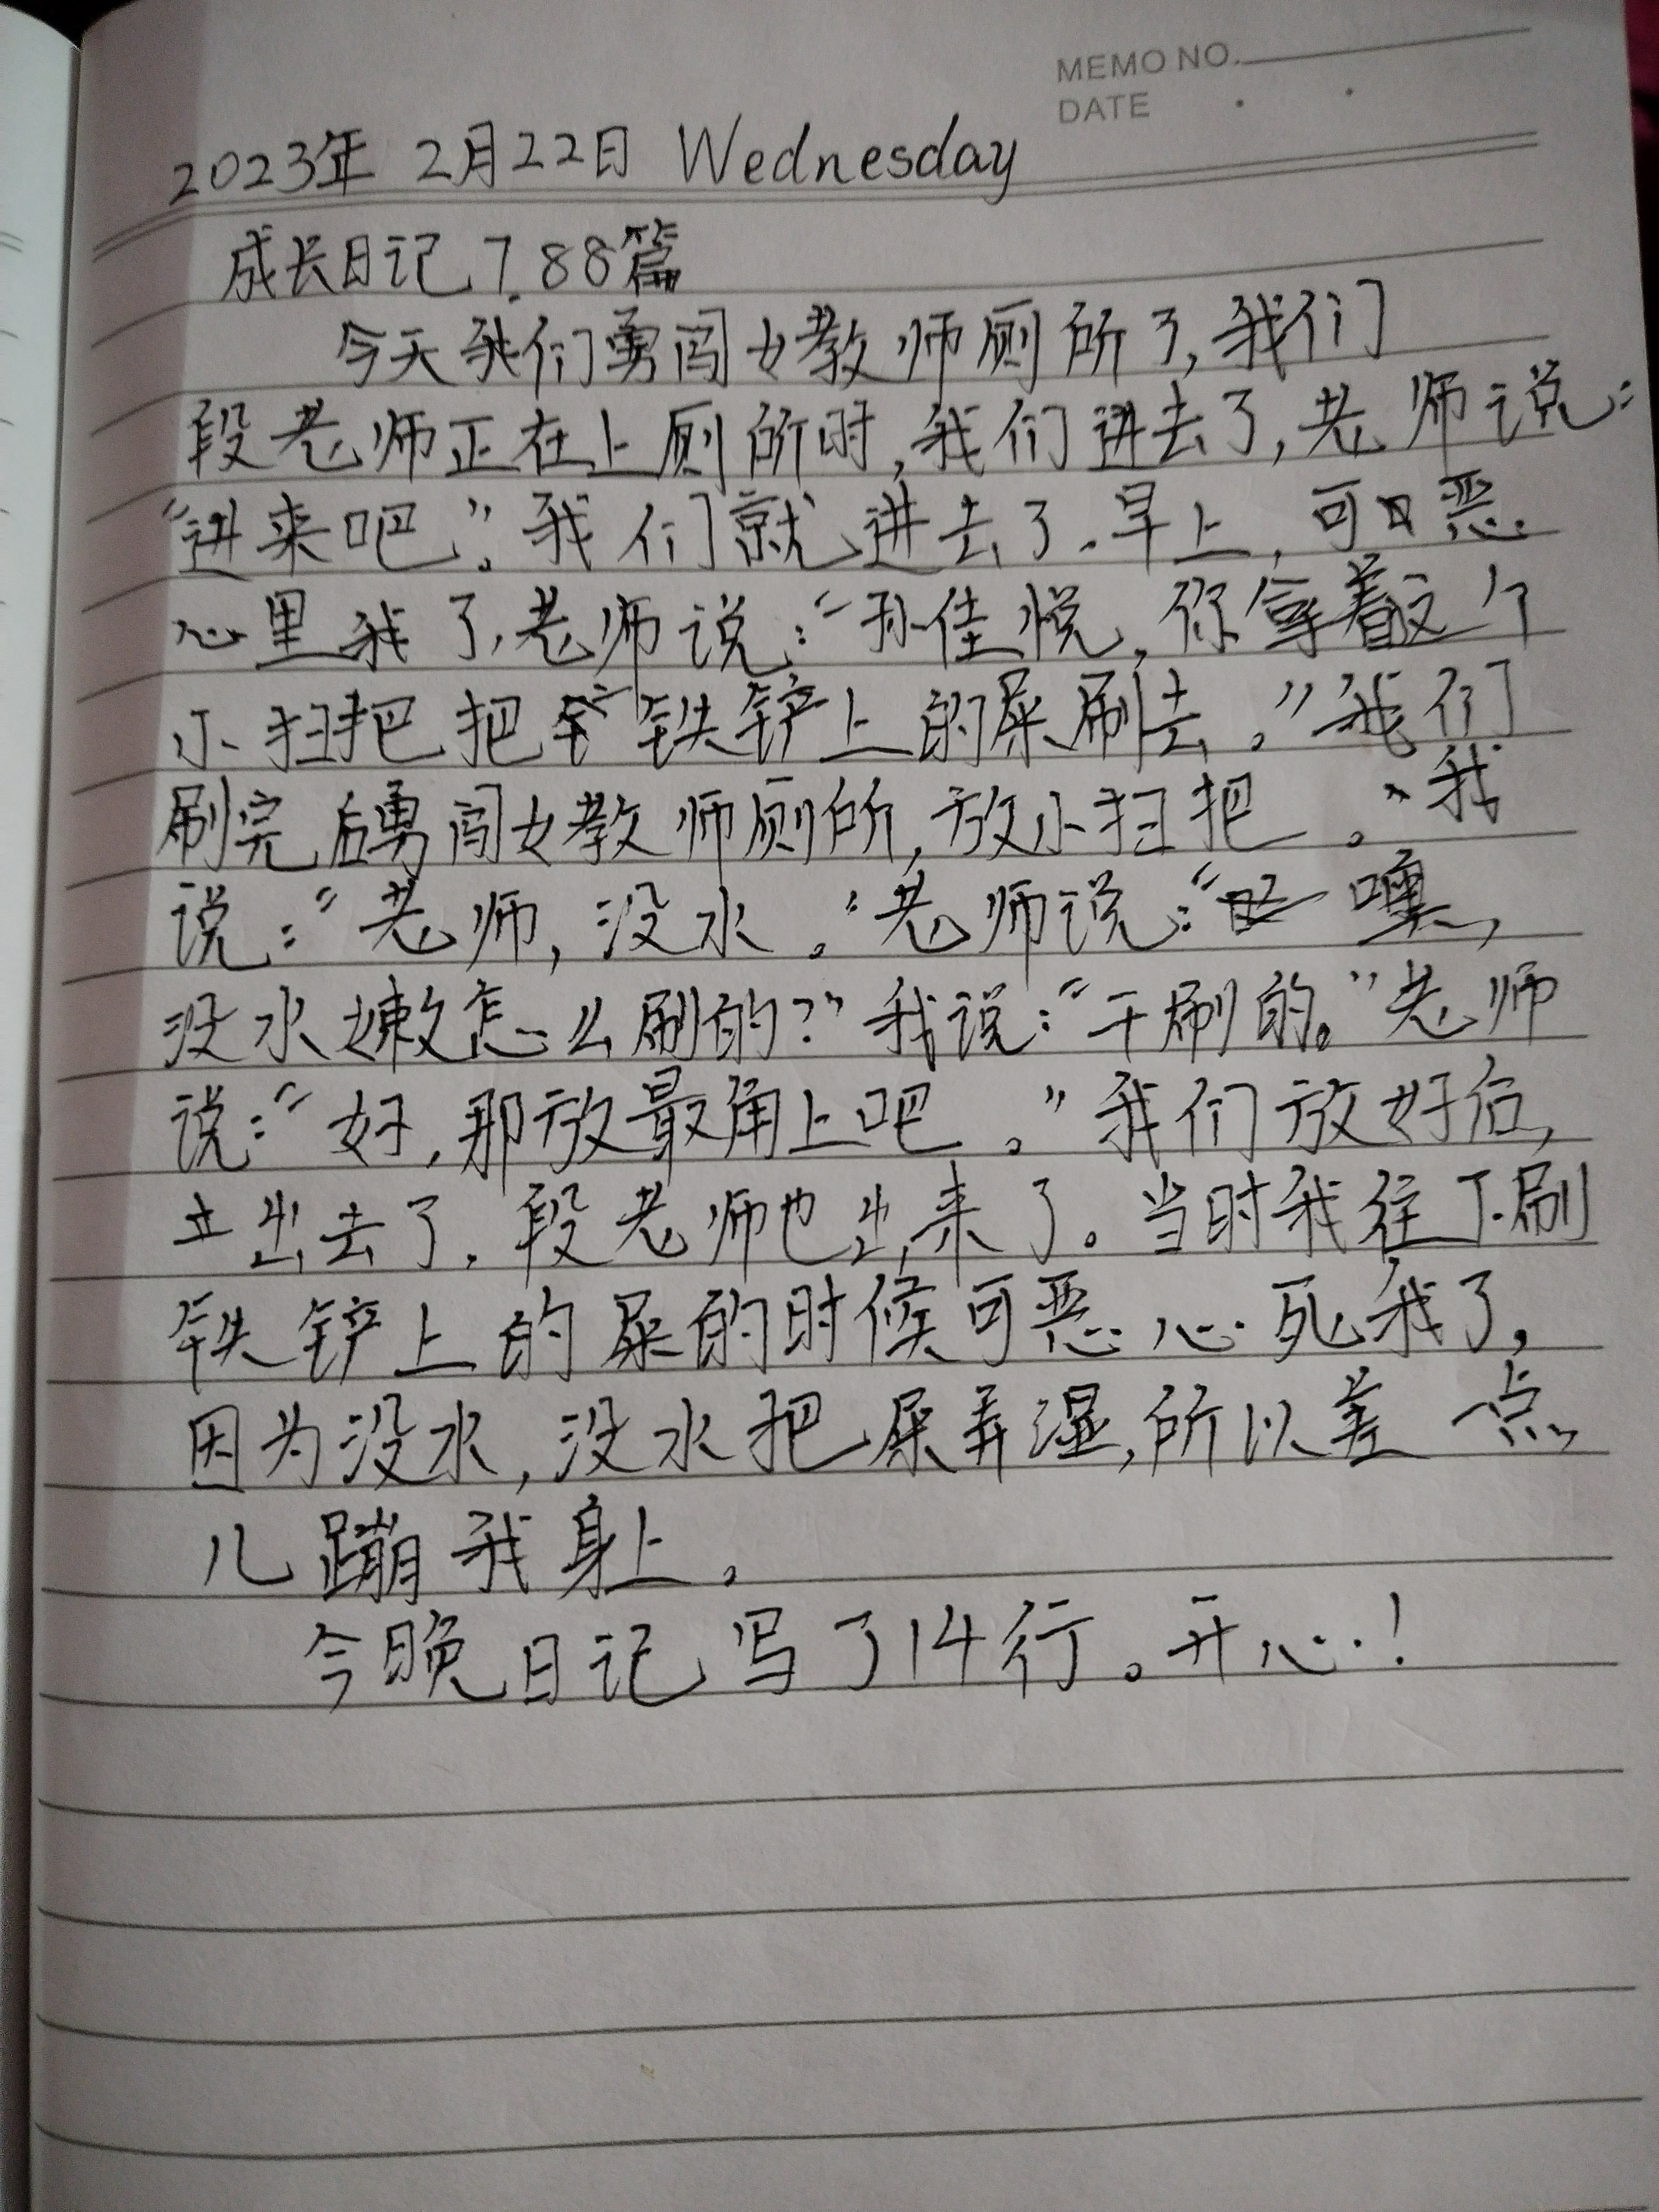 MEMO NO.
DATE
2023年 2月22日 Wednesday
成长日记 7.88篇
今天我们勇闯女教师厕所了,我们
段老师正在上厕所时,我们进去了,老师说:
“进来吧”。我们就进去了.早上,可恶
心里我了,老师说:“孙佳悦,你拿着这个
小扫把把铁铲上的屎刷去。”我们
刷完后勇闯女教师厕所,放小扫把。我
说:“老师,没水。”老师说:“噢,
没水嫩怎么刷的?”我说:“干刷的。”老师
说:“好,那放最角上吧。”我们放好后,
出去了.段老师也出来了。当时我往下刷
铁铲上的屎的时候可恶心死我了,
因为没水,没水把屎弄湿,所以差一点
儿蹦我身上。
今晚日记写了14行。开心!